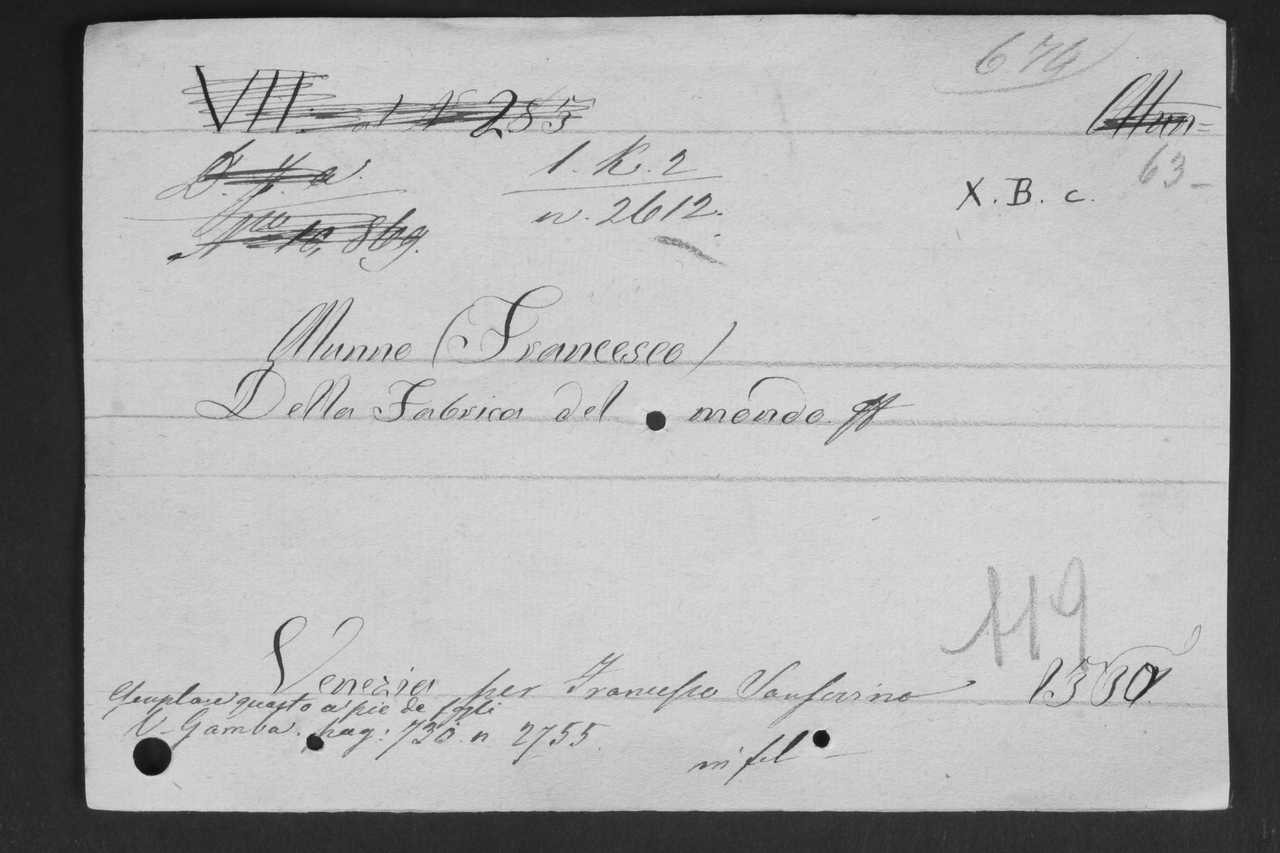 679
VII. 285
Alun=
63-
1. K. 2
n. 2612.
X. B. c.
Alunno (Francesco)
Della Fabrica del mondo.
119
Venezia per Francesco Sansovino 1560
Esemplare guasto a piè de fogli
V. Gamba. pag: 730. n 2755.
in fol